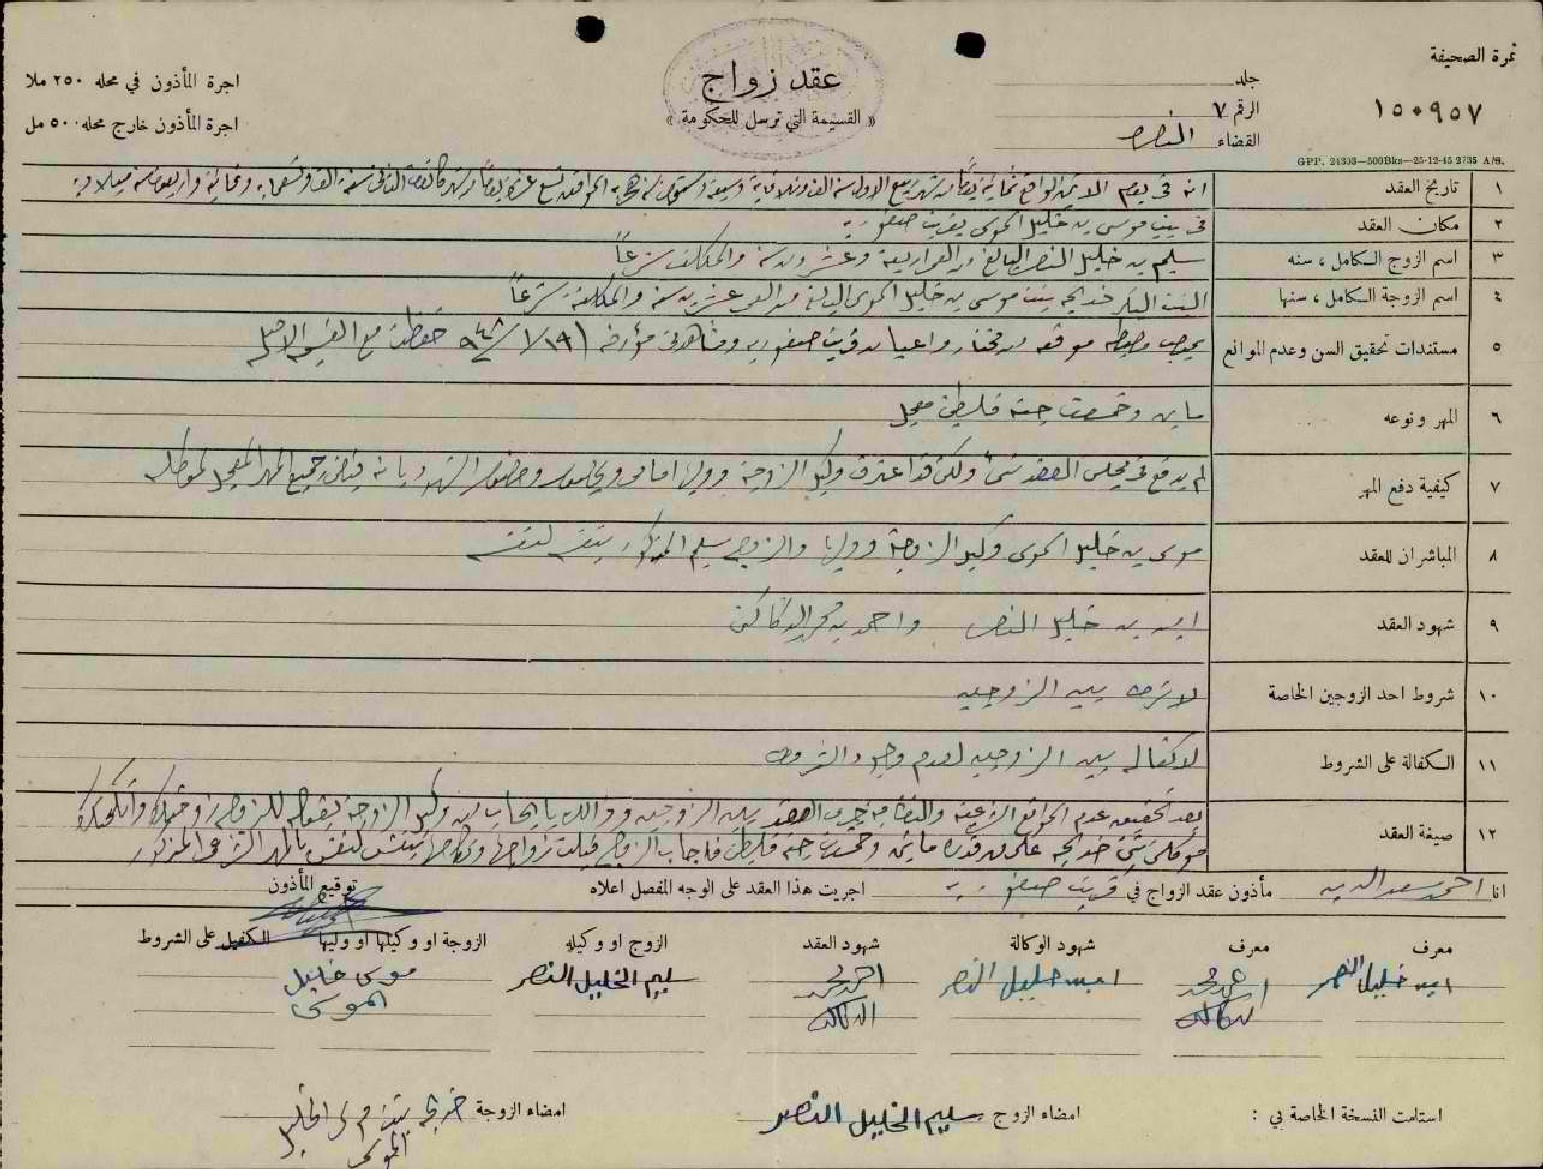 نمرة الصحيفة
١٥٠٩٥٧
جلد
الرقم ٧
القضاء الناصرة
GPP. 24303—500Bks—25-12-45 2735 A/S.
عقد زواج
« القسيمة التي ترسل للحكومة »
اجرة المأذون في محله ٢٥٠ ملا
اجرة المأذون خارج محله ٥٠٠ مل
١ تاريخ العقد انه في يوم الاثنين الواقع ثمانية ربيع الاول سنة الف وثلاثماية وسبعة وستون هجريه الموافق تسع عشرة كانون الثاني سنة الف وتسعمايه وثمانية واربعون ميلاديه
٢ مكان العقد في بيت موسى بن خليل الموسى بقرية صفوريه
٣ اسم الزوج الكامل ، سنه سليم بن خليل النصر البالغ من العمر اربعة وعشرون سنه والمكلف شرعاً
٤ اسم الزوجة الكامل ، سنها البنت البكر خديجه بنت موسى بن خليل الموسى البالغ من العمر عشرين سنه والمكلفة شرعاً
٥ مستندات تحقيق السن وعدم الموانع بموجب مضبطه موقعه من مختار واعيان قرية صفوريه ومؤرخه ١٩/١/٩٤٨ حفظت مع القسيمة الاصليه
٦ المهر ونوعه مايتين وخمسون جنيه فلسطيني معجل
٧ كيفية دفع المهر لم يدفع في مجلس العقد شيء ولكن قد اعترف وكيل الزوجة ووليها امامي وبحضور الشهود بانه قبض جميع المهر المعجل لموكلته
٨ المباشران للعقد موسى بن خليل الموسى وكيل الزوجة ووليها والزوج سليم المذكور بنفسه لنفسه
٩ شهود العقد امين بن خليل النصر واحمد بن محمد
١٠ شروط احد الزوجين الخاصة لا شرط بين الزوجين
١١ الكفالة على الشروط لا كفاله بين الزوجين لعدم وجود الشروط
١٢ صيغة العقد بعد تحقيق عدم الموانع الشرعية والنظاميه جرى العقد بين الزوجين وذلك بايجاب من وكيل الزوجة بقوله للزوج زوجتك وانكحتك
موكلتي بنتي خديجه على مهر قدره مايتين وخمسون جنيه فلسطيني فاجاب الزوج قبلت زواجها ونكاحها بنفسي لنفسي بالمهر الشرعي المذكور
انا احمد سعد الدين مأذون عقد الزواج في قرية صفوريه اجريت هذا العقد على الوجه المفصل اعلاه توقيع المأذون
معرف معرف شهود الوكالة شهود العقد الزوج او وكيله الزوجة او وكيلها او وليها الكفيل على الشروط
امين خليل النصر احمد محمد امين خليل النصر احمد محمد سليم الخليل النصر موسى خليل
الموسى
استلمت النسخة الخاصة بي : امضاء الزوج سليم الخليل النصر امضاء الزوجة خديجه بنت موسى الخليل
الموسى